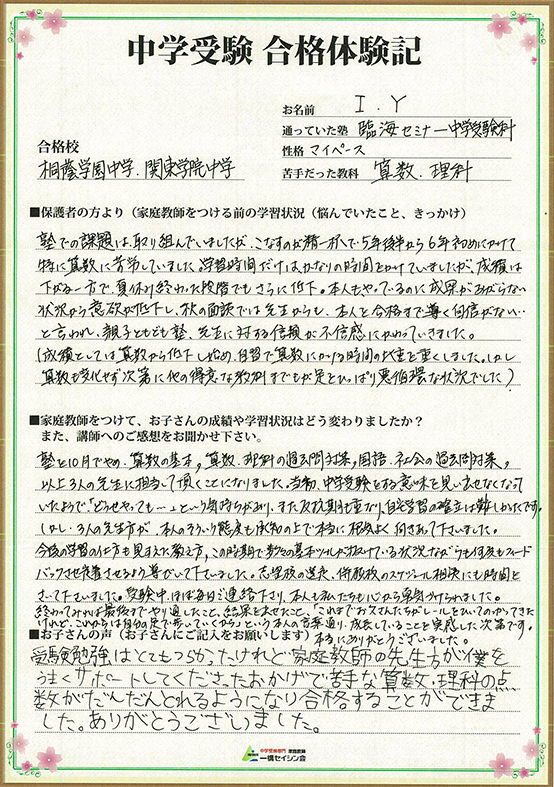 中学受験 合格体験記
お名前 I.Y
通っていた塾 臨海セミナー中学受験科
合格校
性格 マイペース
桐蔭学園中学.関東学院中学
苦手だった教科 算数.理科
■保護者の方より(家庭教師をつける前の学習状況(悩んでいたこと、きっかけ)
塾での課題は、取り組んでいましたが、こなすのが精一杯で5年後半から6年初めにかけて
特に算数に苦労していました。学習時間だけは、かなりの時間をかけていましたが、成績は
下がる一方で、夏休み終わった段階でもさらに低下。本人もやっているのに成果があがらない
状況から意欲が低下し、秋の面談では先生からも、本人と合格まで導く自信がない…
と言われ、親子ともども塾、先生に対する信頼が不信感にかわっていきました。
(成績としては算数から低下し始め、自習で算数にかける時間の比重を重くしました。しかし
算数も変化せず次第に他の得意な教科までもが足をひっぱり悪循環な状況でした)
■家庭教師をつけて、お子さんの成績や学習状況はどう変わりましたか?
また、講師へのご感想をお聞かせ下さい。
塾を10月でやめ、算数の基本、算数、理科の過去問対策、国語、社会の過去問対策、
以上3人の先生に担当して頂くことになりました。当初、中学受験をする意味を見い出せなくなって
いたようで「どうせやっても…」という気持ちがあり、また反抗期も重なり、自宅学習の確立は難しかったです。
しかし、3人の先生方が、本人のそういう態度も承知の上で本当に根気よく向き合って下さいました。
今後の学習の仕方も見すえた教え方、この時期で数々の基本ツールが抜けている状況ながらも何度もフィード
バックさせ定着させるよう導びいて下さいました。志望校の選定、併願校のスケジュール相談にも時間を
さいて下さいました。受験中はほぼ毎日ご連絡下さり、本人も私たちも心から勇気づけられました。
終わってみれば最後までやり通したこと、結果を出せたこと、「これまでお父さんたちがレールをしいてのかってきた
けれど、これからは自分の足で歩いていくから」という本人の言葉通り、成長していることを実感した次第です。
本当にありがとうございました。
■お子さんの声(お子さんにご記入をお願いします)
受験勉強はとてもつらかったけれど家庭教師の先生方が僕を
うまくサポートしてくださったおかげで苦手な算数・理科の点
数がだんだんとれるようになり合格することができま
した。ありがとうございました。
中学受験専門 家庭教師
一橋セイシン会